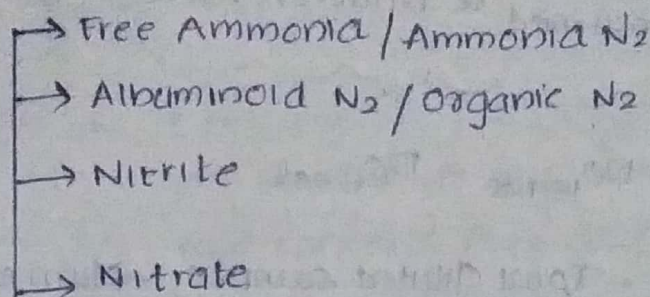 → Free Ammonia / Ammonia N₂
→ Albuminoid N₂ / Organic N₂
→ Nitrite
→ Nitrate